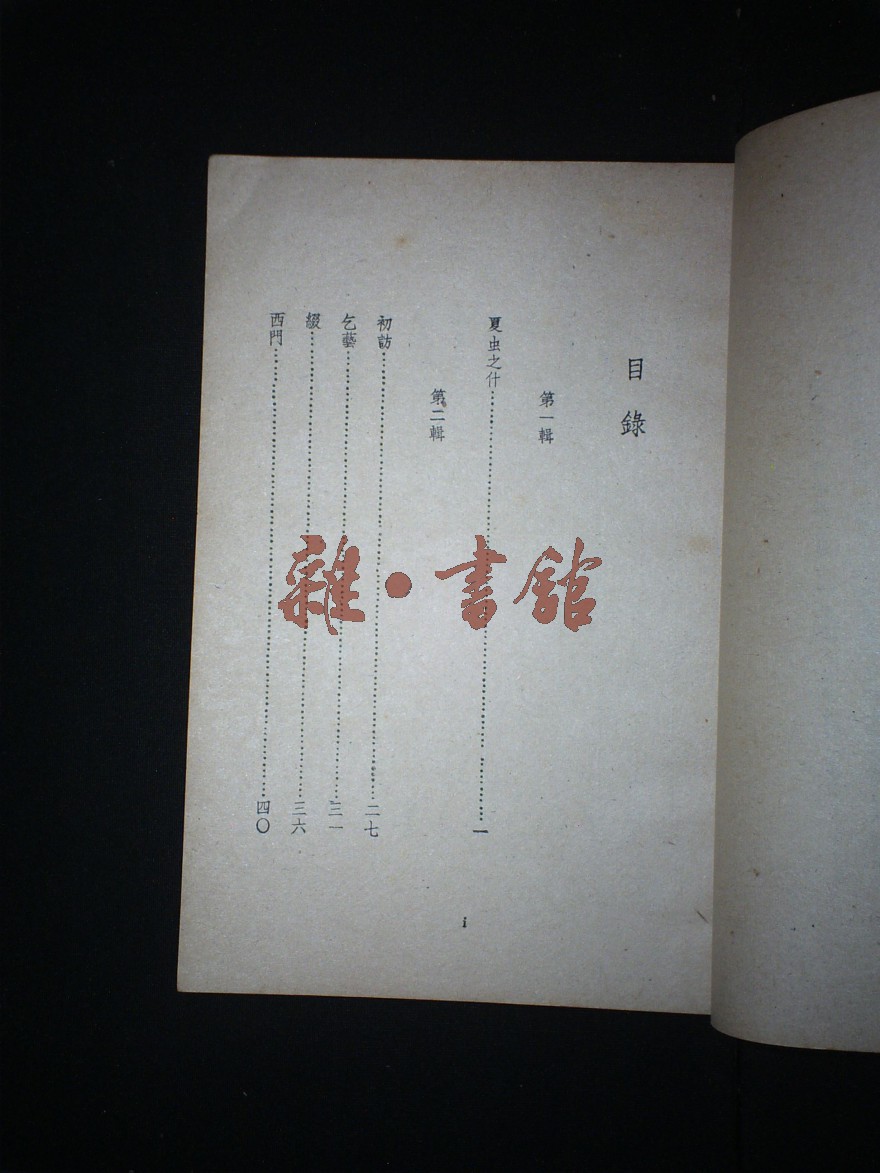 目錄
第一輯
夏虫之什……一
第二輯
初訪……二七
乞藝……三一
綴……三六
西門……四〇
i
雜·書館